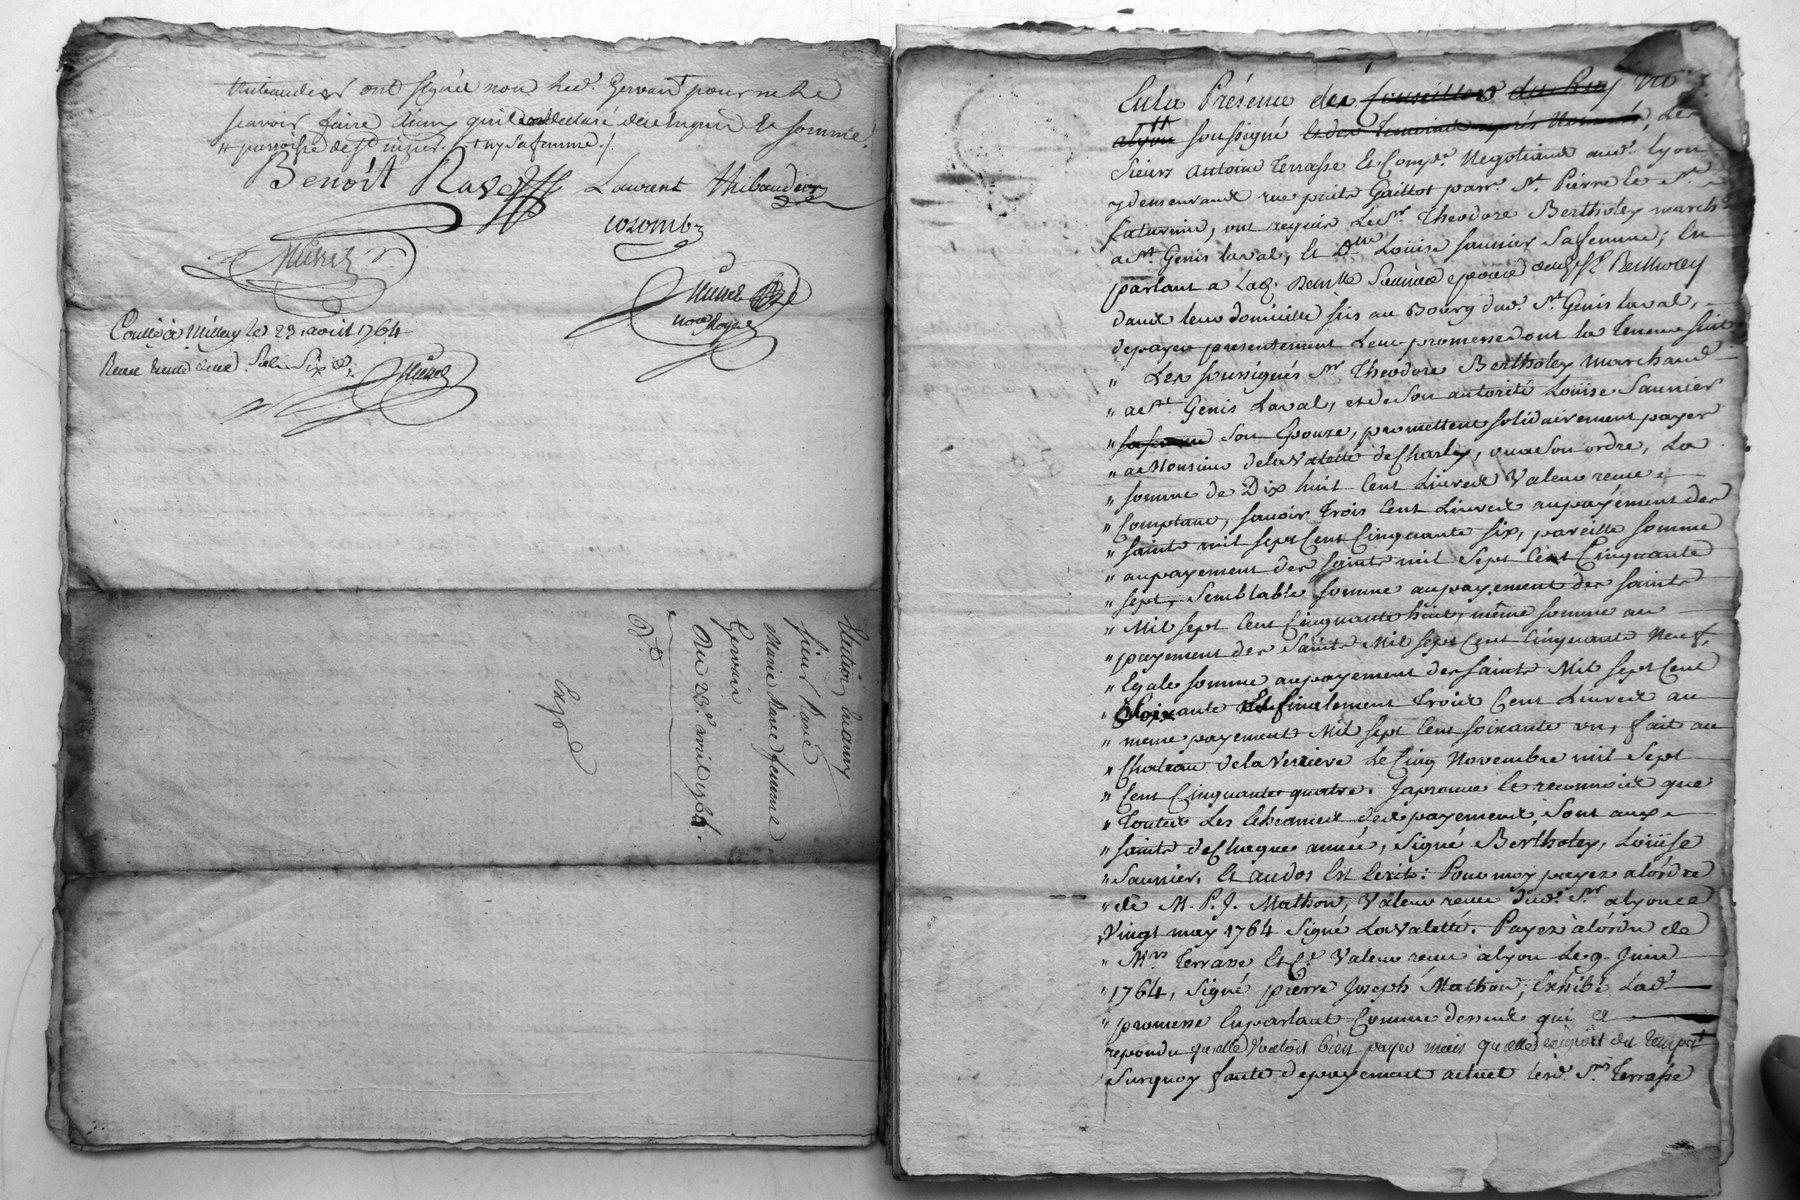 thibaudier ont signée non led. Gervais pour ne le
scavoir faire ainsy quil a declaré de ce enquis & sommé
paroisse de st
ny sa femme ./.
Benoît Rave Laurent thibaudier
colomb
Contlé à Millery le 29 avril 1764
Receu
Election en amy
sieur Rave
Marie Rave femme
Gervais
Du 23e avril 1764.
Expé
En la Présence des Conseillers du Roy
alyon soussigné et des temoins après Nommés, Les
Sieurs antoine Terrasse Et Compe. Negotiants aud. Lyon
y demeurants rue puits Gaillot parr. St. Pierre et St.
Saturnin, ont requis Le Sr. Theodore Bertholey march.
a St. Genis laval, Et Dlle Loüise Saunier Sa femme, En
parlant a Lad. Demlle Saunier epouse dud. Sr Bertholey
dans leur domicille sis au Bourg dud. St. Genis laval,
de payer presentement Leur promesse dont la Teneur suit
" Les soussignés Sr Theodore Bertholey marchand
" a St. Genis Laval, et de Son autorité Loüise Saunier
" sa femme Son Epouze, promettent solidairement payer
" a Monsieur dela Valette de Charly, ou a Son ordre, La
" somme de Dix huit Cent Livres Valeur receue
" Comptant, savoir Trois Cent Livres au payement des
" saints mil sept Cent Cinquante six, pareille somme
" au payement des saints mil sept Cent Cinquante
" sept, Semblable somme au payement des saints
" Mil sept Cent Cinquante huit, même somme au
" payement des Saints Mil sept Cent Cinquante Neuf,
" Egale somme au payement des saints Mil sept Cent
" Soixante Et finalement Trois Cent Livres au
" meme payement Mil sept Cent soixante un, fait au
" Chateau dela Le Cinq Novembre mil Sept
" Cent Cinquante quatre. J'aprouve Et reconnoix que
" Toutes Les Echeances des payements, Sont aux
" saints de Chaque année, Signé Bertholey, Loüise
" Saunier, Et au dos Est Ecrit: Pour moy payez a lordre
" de M. P. J. Mathon, Valeur receue dud. Sr. a lyon ce
" Vingt may 1764 Signé LaValette. Payez à lordre de
" Mrs. Terrasse Et Ce. Valeur receue à lyon Le 9. Juin
" 1764, Signé pierre Joseph Mathon; Exhibé Lad.
" promesse En parlant Comme dessus qui a
repondu quelle Vouloit bien payer mais quelle du Temps
Surquoy faute de payement actuel lesd. Srs. Terrasse